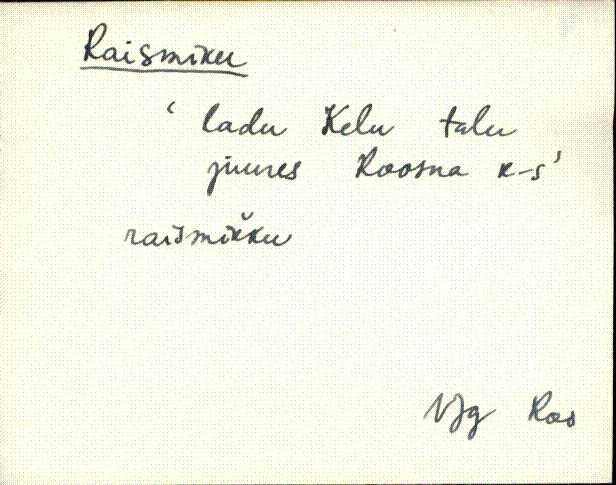 Raismiku
‘ladu Kelu talu
juures Roosna k-s’
raismikku
VJg Roo